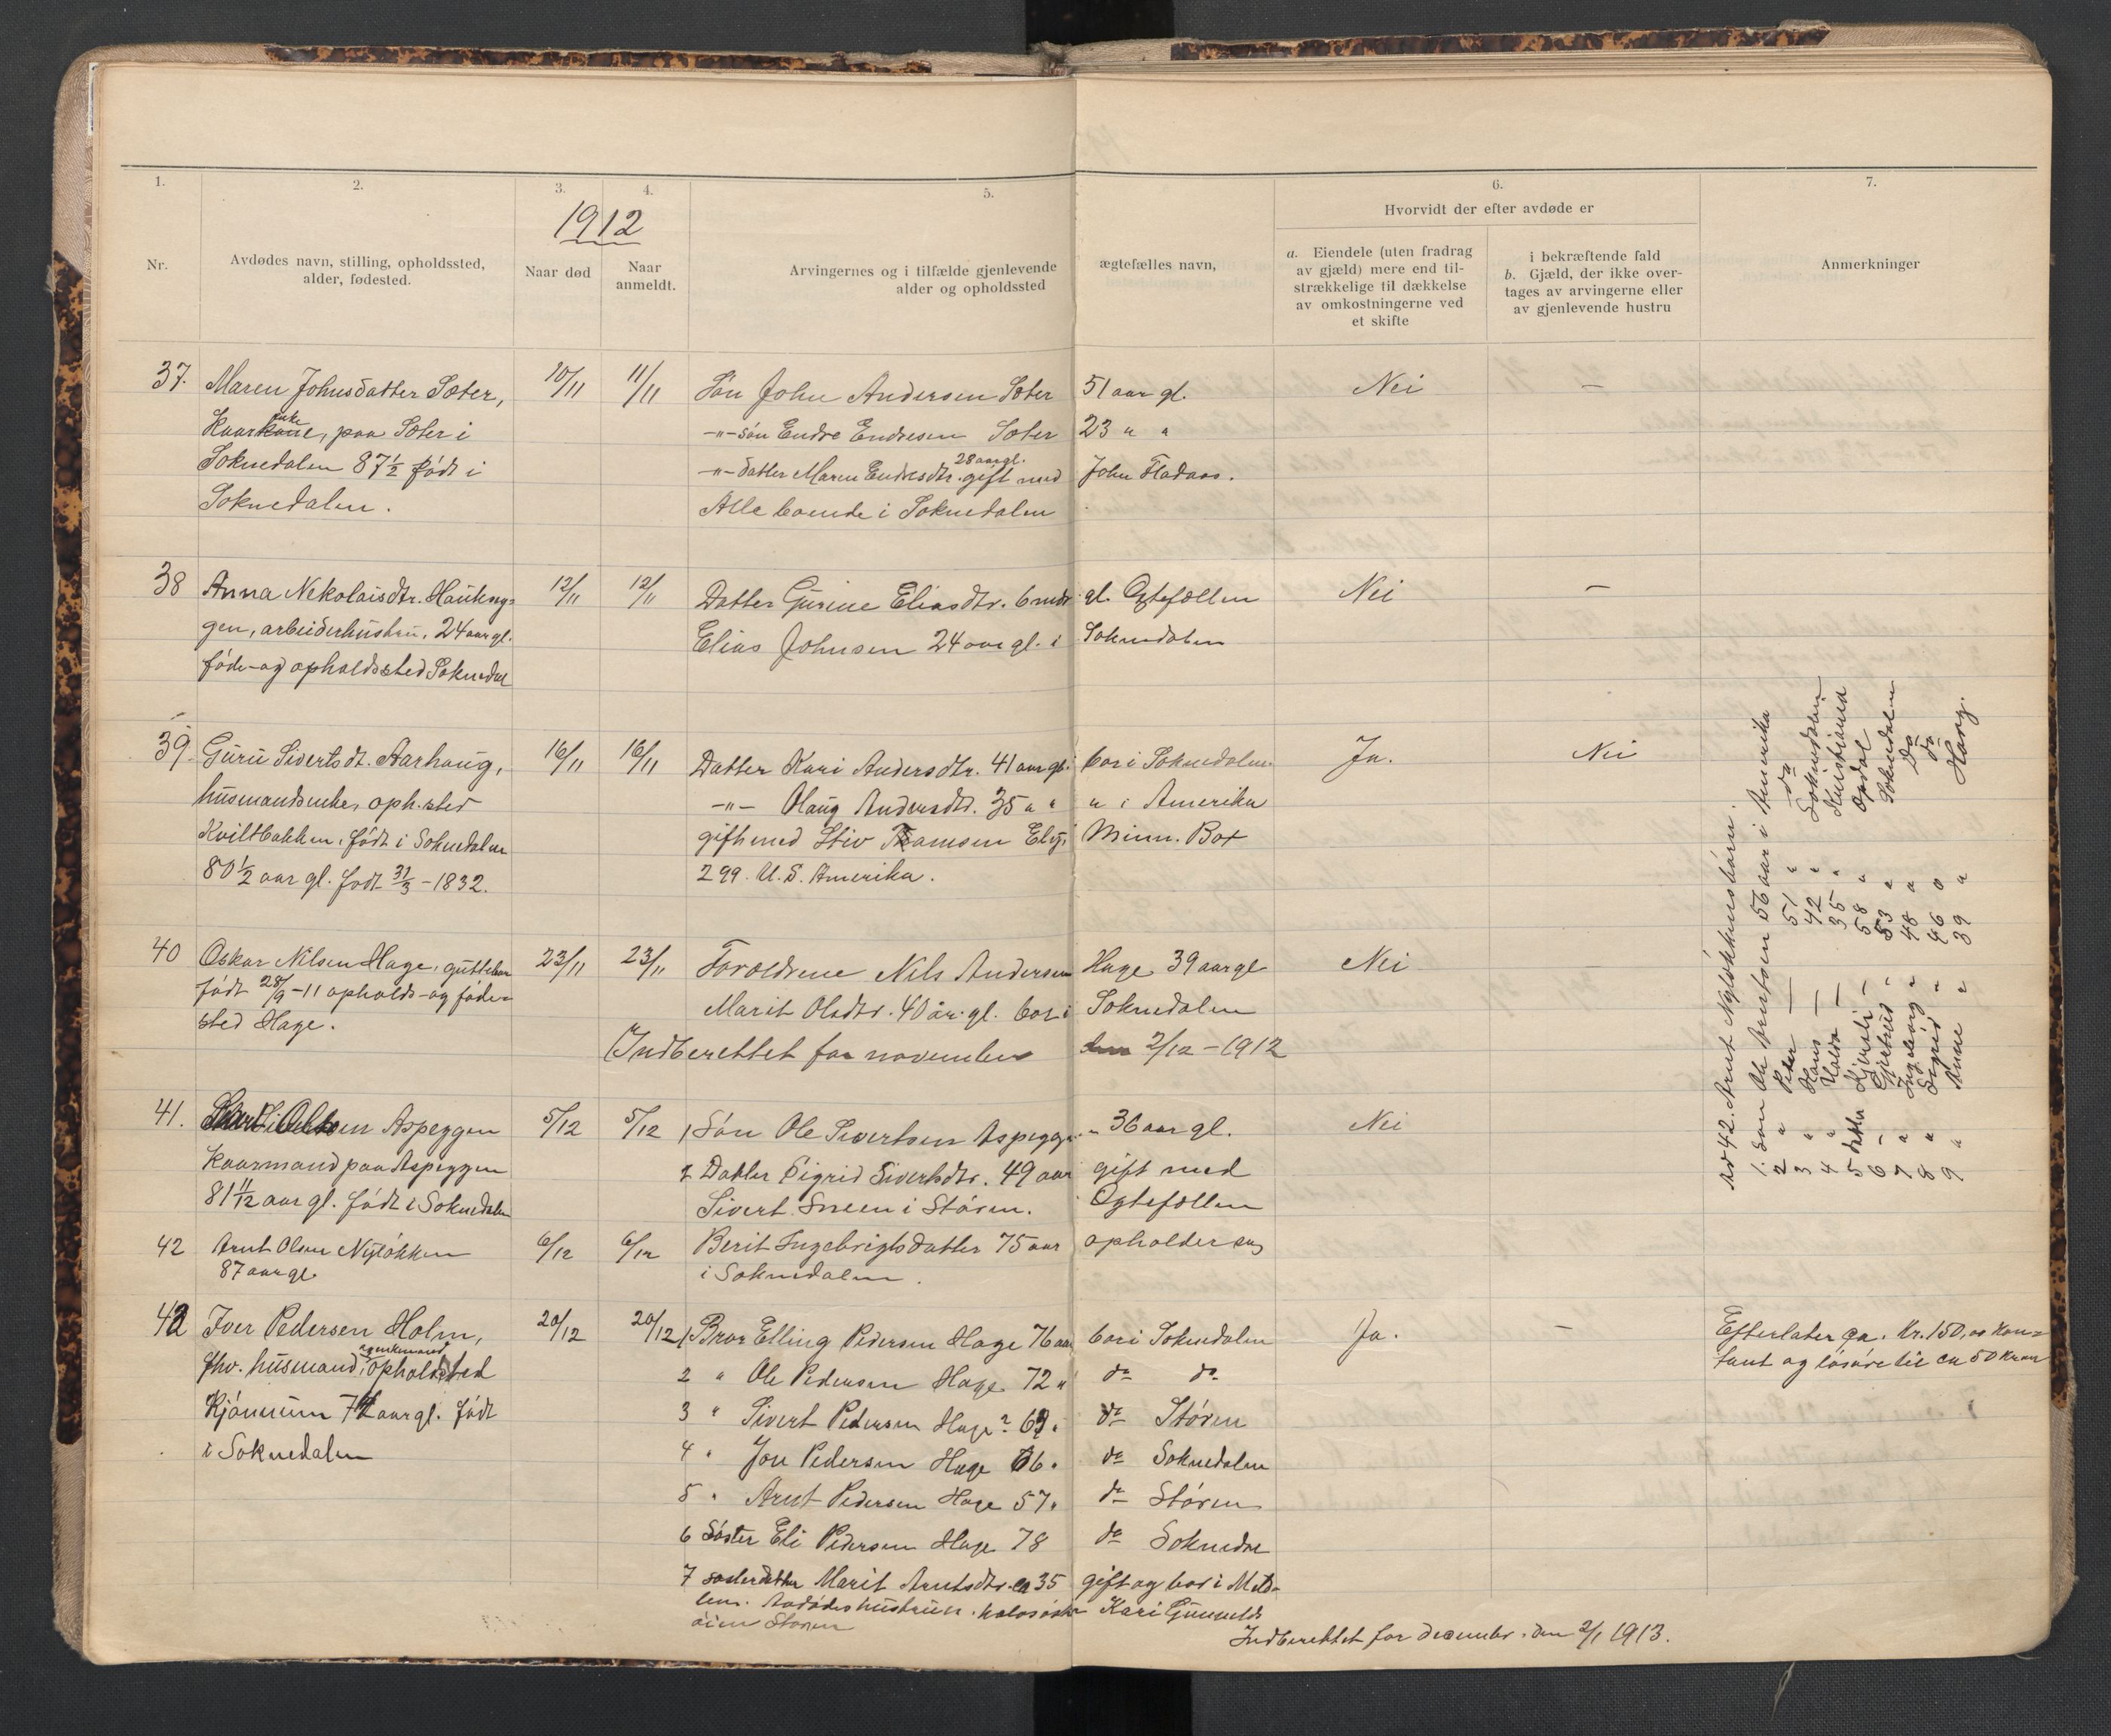 1.
2.
3.
4.
5.
6.
7.
1912
Hvorvidt der efter avdøde er
Nr.
Avdødes navn, stilling, opholdssted,
alder, fødested.
Naar død
Naar
anmeldt.
Arvingernes og i tilfælde gjenlevende ægtefælles navn,
alder og opholdssted
a. Eiendele (uten fradrag
av gjæld) mere end til-
strækkelige til dækkelse
av omkostningerne ved
et skifte
i bekræftende fald
b. Gjæld, der ikke over-
tages av arvingerne eller
av gjenlevende hustru
Anmerkninger
37. Maren Johnsdatter Sæter, 10/11 11/11 Søn John Andersen Sæter 51 aar gl. Nei —
Kaarkone, paa Sæter i -"- søn Endre Endresen Sæter 23 " "
enke
Soknedalen 87 1/2 født i -"- datter Maren Endresdtr. 28 aar gl. gift med John Fladaas.
Soknedalen. Alle boende i Soknedalen
38 Anna Nekolaisdtr. Haukeng= 12/11 12/11 Datter Gurine Eliasdtr. 6 mdr gl. Egtefællen Nei —
gen, arbeiderhustru, 24 aar gl. Elias Johnsen 24 aar gl. i Soknedalen
føde- og opholdssted Soknedal
39. Guru Sivertsdt. Aarhaug, 16/11 16/11 Datter Kari Andersdtr. 41 aar gl. bor i Soknedalen Ja. Nei
husmandsenke, oph.sted -"- Olaug Andersdtr. 35 " " " i Amerika
Kviltbakken, født i Soknedalen gift med Stiv Ely, Minn. Box
80 1/2 aar gl. født 31/3 - 1832. 299. U. S. Amerika.
40 Oskar Nilsen Hage, guttebarn 23/11 23/11 Foroldrene Nils Andersen Hage 39 aar gl Nei
født 28/9 - 11 opholds- og føde= Marit Olsdtr. 40 år. gl. bor i Soknedalen
sted Hage.
Indberettet for november den 2/12 - 1912
41. Sivert Olsen Aspeggen 5/12 5/12 1 Søn Ole Sivertsen Aspeggen " 36 aar gl. Nei
Kaarmand paa Aspeggen 2 Datter Sigrid Sivertsdtr. 49 aar gift med
81 11/12 aar gl. født i Soknedalen Sivert Sneen i Støren. Egtefællen
42 Arnt Olsen Nyløkken 6/12 6/12 Berit Ingebrigtsdatter 75 aar opholder sig
87 aar gl. i Soknedalen.
42 Iver Pedersen Holm, 20/12 20/12 1 Bror Elling Pedersen Hage 76 aar bor i Soknedalen Ja. — Efterlater ca. Kr. 150,00 kon=
fhv. husmand, opholdsted 2 " Ole Pedersen Hage 72 " do do tant og løsøre til ca 50 kroner
enkemand
Kjønnum 74 aar gl. født 3 " Sivert Pedersen Hage? 69 " do Støren
i Soknedalen 4 " Jon Pedersen Hage 66 " do Soknedalen
5 " Arnt Pedersen Hage 57 " do Støren
6 Søster Eli Pedersen Hage 78 do Soknedal
7 søsterdatter Marit Arntsdtr. ca 35 gift og bor i Meld-
len. Avdødes hustrues halvsøster Kari Gunnelds
øien Støren
Indberettet for december den 2/1 1913.
ad 42. Arnt Nyløkkens børn.
1. Søn Ole Arntsen 56 aar i Amerika
2 " Peter — 51 " do
3 " Hans — 42 " Soknedalen
4 " Haldo — 35 " Kristiania
5 datter Kjersti - 58 " Opdal
6 - Gjertrud " 53 " Soknedalen
7 " Ingeborg " 48 " Do
8 " Sigrid " 46 " do
9 " Anne " 39 " Horg.